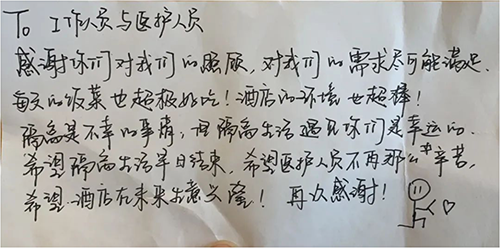 To 工作人员与医护人员
感谢你们对我们的照顾，对我们的需求尽可能满足.
每天的饭菜也超极好吃！酒店的环境也超棒！
隔离是不幸的事情，但隔离生活遇见你们是幸运的.
希望隔离生活早日结束，希望医护人员不再那么辛苦，
希望酒店在未来生意兴隆！再次感谢！